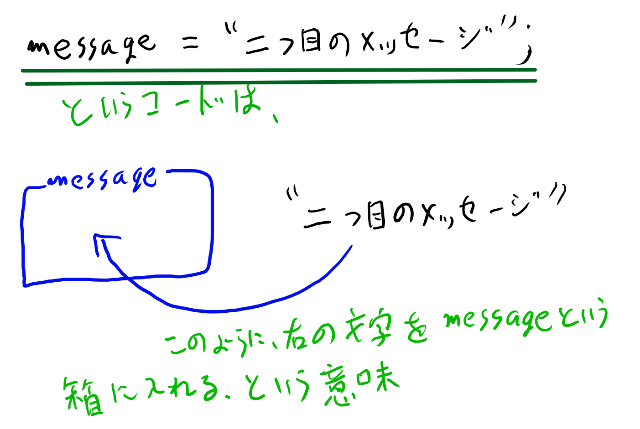 message = “二つ目のメッセージ”;
というコードは、
message
“二つ目のメッセージ”
このように、右の文字をmessageという
箱に入れる、という意味